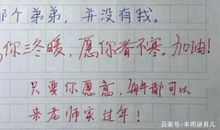 那个弟弟，并没有我。
你冬暖，愿你春不寒。加油！
只要你愿意，每年都可以
来老师家过年！
百家号/丰雨讲育儿